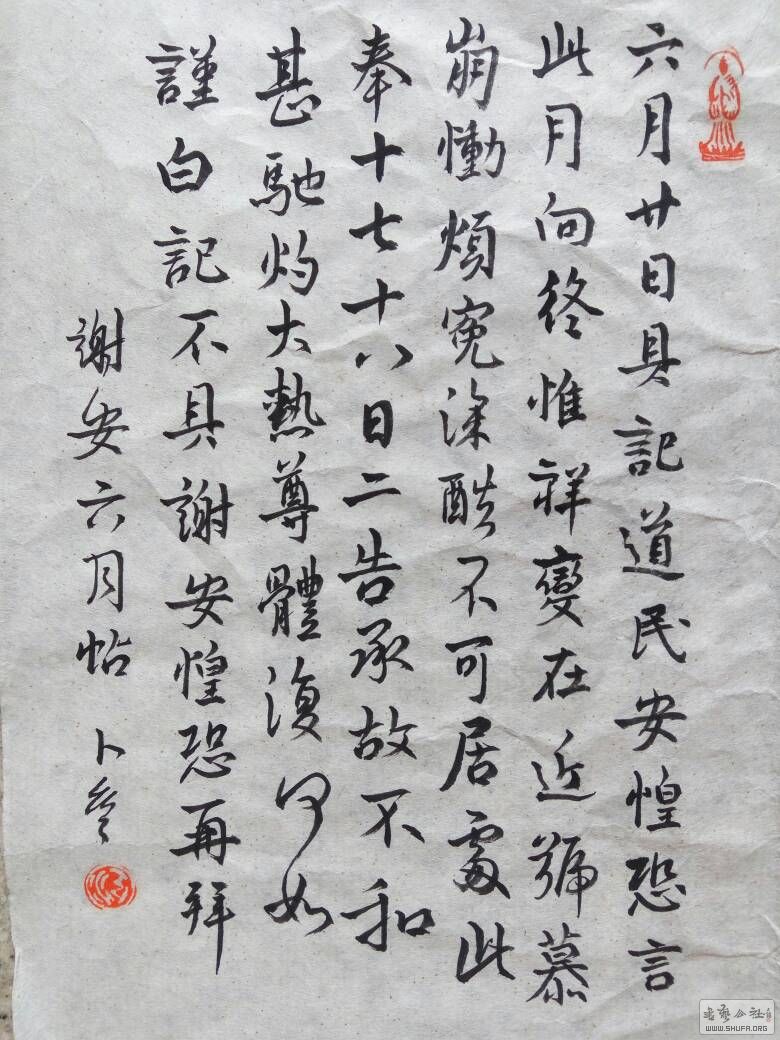 六月廿日具記道民安惶恐言
此月向終惟祥變在近號慕
崩慟煩冤深酷不可居處此
奉十七十八日二告承故不和
甚馳灼大熱尊體復何如
謹白記不具謝安惶恐再拜
謝安六月帖 卜
書藝公社
WWW.SHUFA.ORG